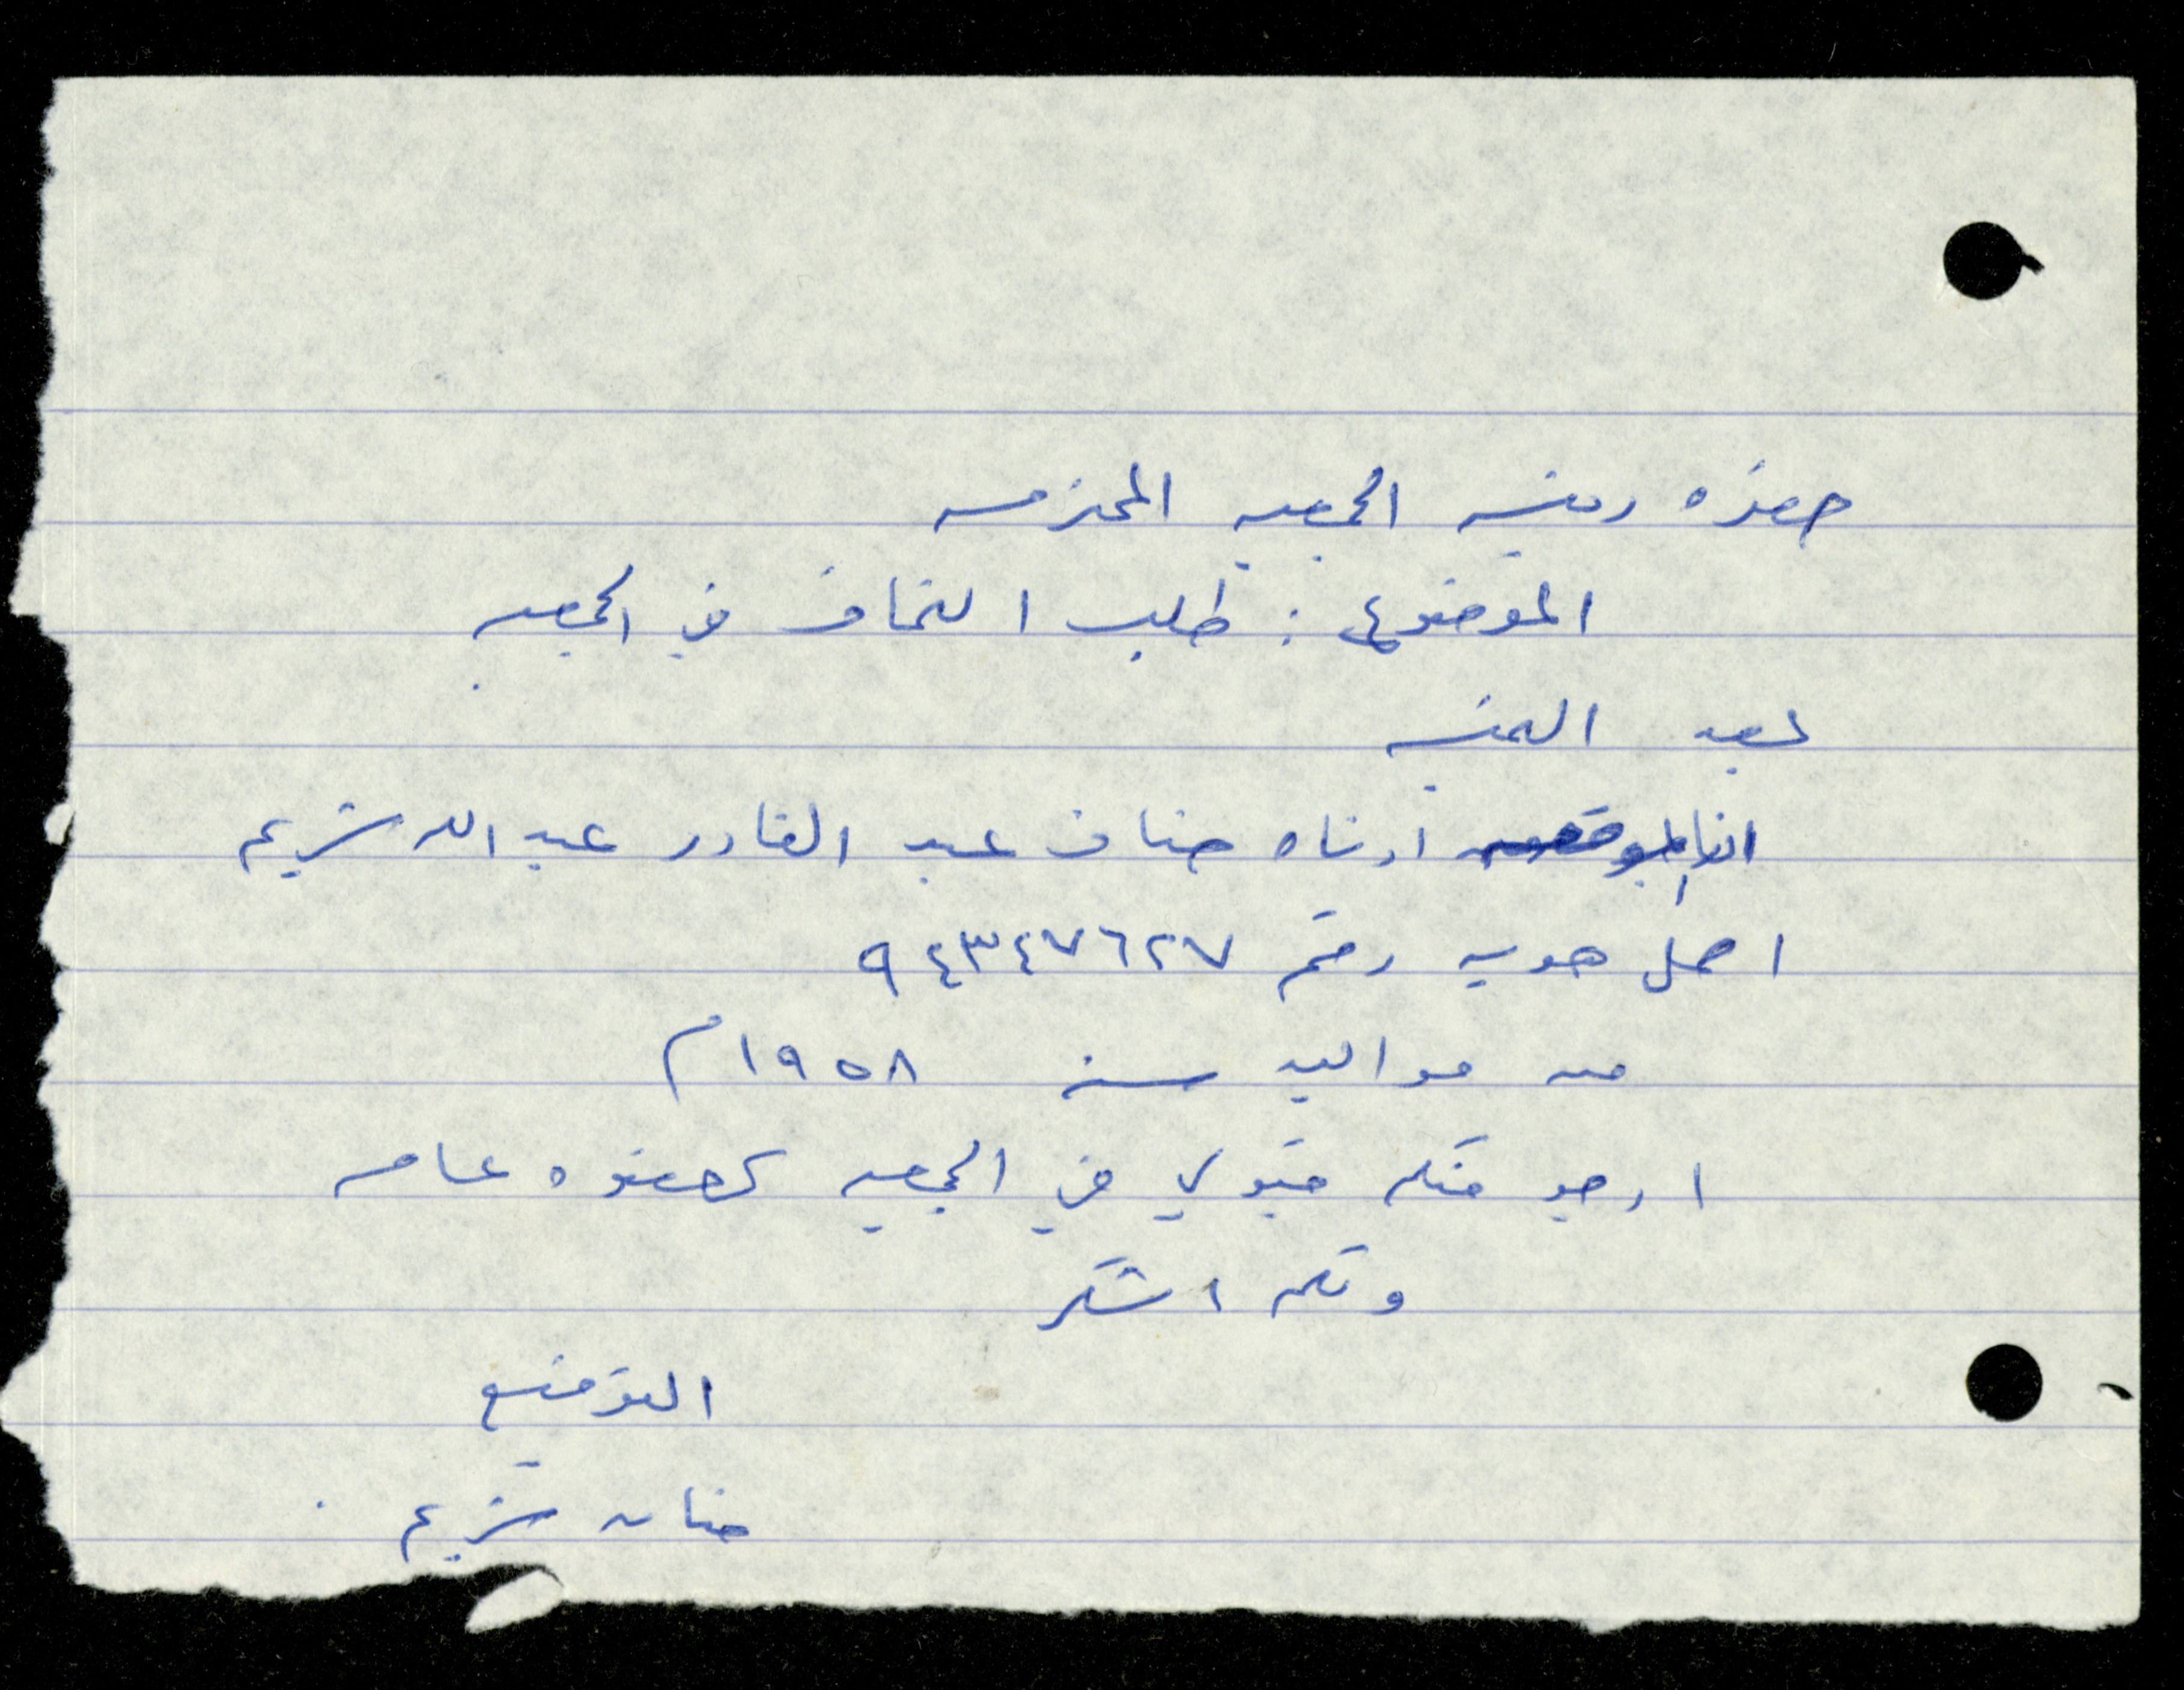 حضره رئيسه الجمعيه المحترمه
الموضوع : طلب التحاق في الجمعيه
بعد التحيه
انا الموقعه ادناه حنان عبد القادر عبد الله شريم
احمل هويه رقم ٩٤٣٤٧٦٢٧
من مواليد سنه ١٩٥٨م
ارجو منكم قبولي في الجمعيه كعضوه عامه
ولكم الشكر
التوقيع
حنان شريم .